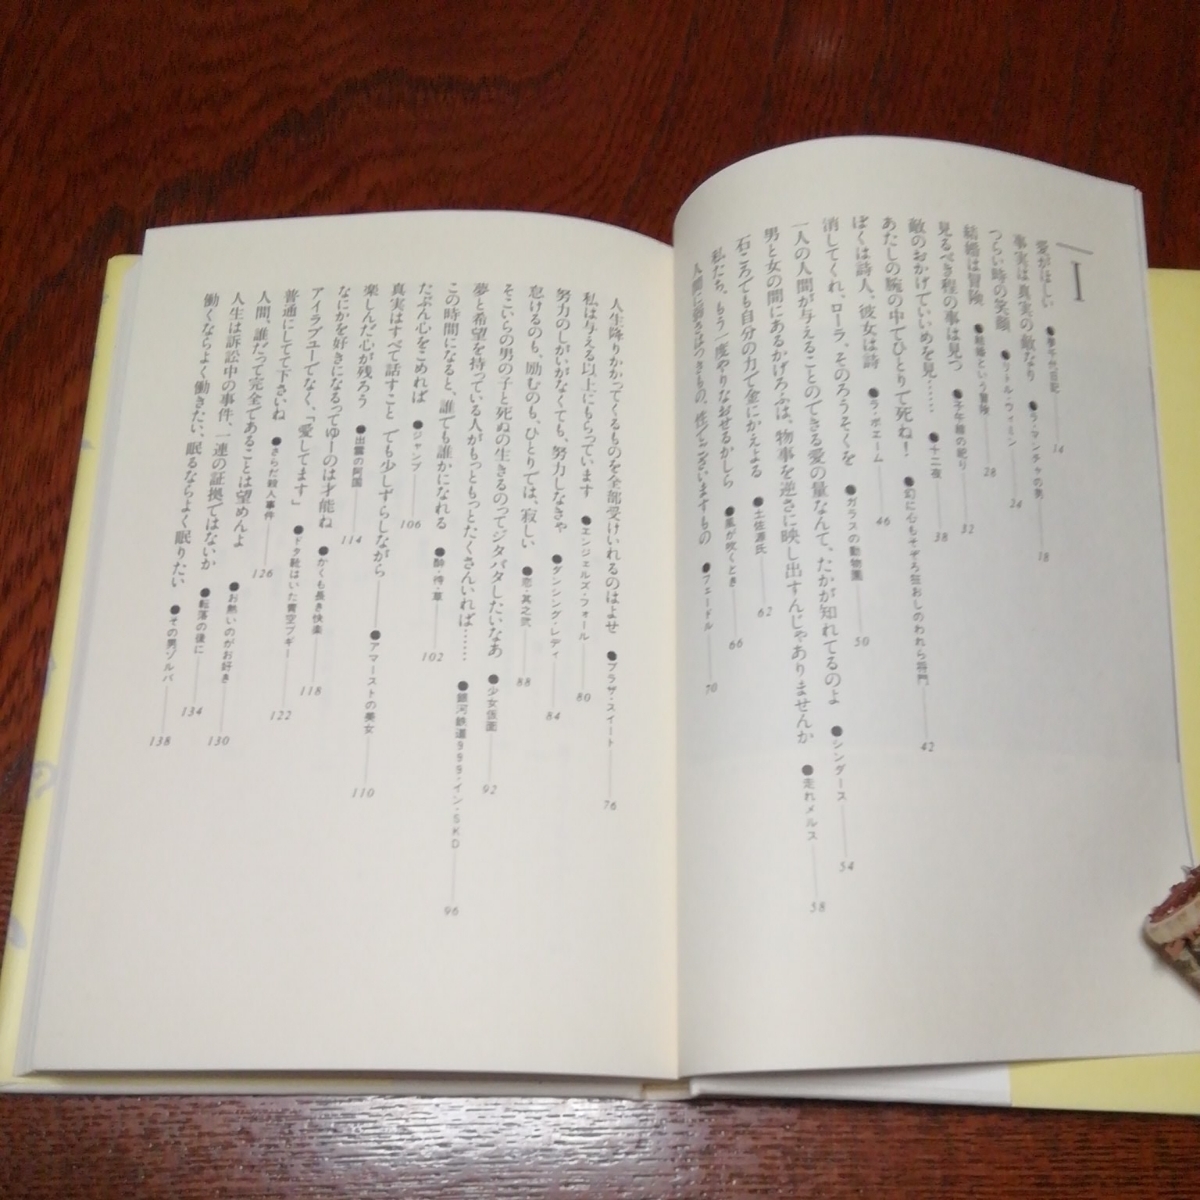 I
愛がほしい ●夢千代日記 14
事実は真実の敵なり ●ラ・マンチャの男 18
つらい時の笑顔 ●リトル・ウィミン 24
結婚は冒険 ●結婚という冒険 28
見るべき程の事は見つ ●子午線の祀り 32
敵のおかげでいいめを見…… ●十二夜 38
あたしの腕の中でひとりで死ね! ●幻に心もそぞろ狂おしのわれら将門 42
ぼくは詩人、彼女は詩 ●ラ・ボエーム 46
消してくれ、ローラ、そのろうそくを ●ガラスの動物園 50
一人の人間が与えることのできる愛の量なんて、たかが知れてるのよ ●シンダース 54
男と女の間にあるかげろふは、物事を逆さに映し出すんじゃありませんか ●走れメルス 58
石ころでも自分の力で金にかえよる ●土佐源氏 62
私たち、もう一度やりなおせるかしら ●風が吹くとき 66
人間に弱さはつきもの、性でございますもの ●フェードル 70
人生降りかかってくるものを全部受けいれるのはよせ ●プラザ・スイート 76
私は与える以上にもらっています ●エンジェルズ・フォール 80
努力のしがいがなくても、努力しなきゃ ●ダンシング・レディ 84
怠けるのも、励むのも、ひとりでは、寂しい ●恋・其之弐 88
そこいらの男の子と死ぬの生きるのってジタバタしたいなあ ●少女仮面 92
夢と希望を持っている人がもっともっとたくさんいれば…… ●銀河鉄道999・イン・SKD 96
この時間になると、誰でも誰かになれる ●酔・待・草 102
たぶん心をこめれば ●ジャンプ 106
真実はすべて話すこと でも少しずらしながら ●アマーストの美女 110
楽しんだ心が残ろう ●出雲の阿国 114
なにかを好きになるってゆーのは才能ね ●かくも長き快楽 118
アイラブユーでなく、「愛してます」 ●ドタ靴はいた青空ブギー 122
普通にしてて下さいね ●さらだ殺人事件 126
人間、誰だって完全であることは望めんよ ●お熱いのがお好き 130
人生は訴訟中の事件、一連の証拠ではないか ●転落の後に 134
働くならよく働きたい、眠るならよく眠りたい ●その男ゾルバ 138